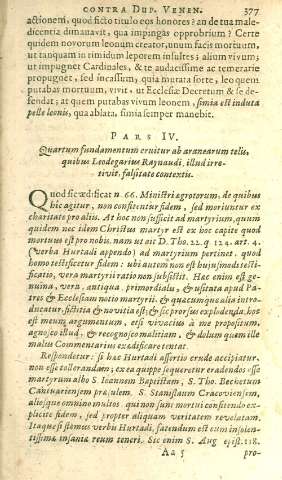 CONTRA DUP. VENEN. 377
actionem, quod ficto titulo eos honores? an de tua male-
dicentia dimanavit, qua impingas opprobrium? Certe
quidem novorum leonum creator, unum facis mortuum,
ut tanquam in timidum leporem insultes: alium vivum;
ut impugnet Cardinales, & te audacissime ac temerarie
propugnet, sed incassum, quia mutata sorte, leo quem
putabas mortuum, vivit, ut Ecclesiæ Decretum & se de-
fendat; at quem putabas vivum leonem, simia est induta
pelle leonis, qua ablata, simia semper manebit.
PARS IV.
Quartum fundamentum eruitur ab aranearum telis,
quibus Leodegarius Raynaudi, illud irre-
tivit, falsitate contextis.
Quod sic ædificat n. 66. Ministri ægrotorum, de quibus
hic agitur, non confitentur fidem, sed moriuntur ex
charitate pro aliis. At hoc non sufficit ad martyrium, quum
quidem nec idem Christus martyr est ex hoc capite quod
mortuus est pro nobis. nam ut ait D. Tho. 22. q. 124. art. 4.
(verba Hurtadi appendo) ad martyrium pertinet, quod
homo testificetur fidem: ubi autem non est hujusmodi testi-
ficatio, vera martyrii ratio non subsistit. Hæc enim est ge-
nuina, vera, antiqua, primordialis, & usitata apud Pa-
tres & Ecclesiam notio martyrii. & quæcumque alia intro-
ducatur, fictitia & novitia est; & sic prorsus explodenda. hoc
est meum argumentum, etsi vivacius à me propositum,
agnosco illud, & recognosco malitiam, & dolum quem ille
malus Commentarius exædificare tentat.
Respondetur: si hæc Hurtadi assertio crude accipiatur,
non esse tollerandam; ex ea quippe sequeretur eradendos esse
martyrum albo S. Joannem Baptistam, S. Tho. Becketum
Cantuariensem præsulem. S. Stanislaum Cracoviensem,
aliosque omnino multos. qui non sunt mortui confitendo ex-
plicite fidem, sed propter aliquam veritatem revelatam.
Itaque si stemus verbis Hurtadi, fatendum est eum insolen-
tissimæ insaniæ reum teneri. Sic enim S. Aug epist. 118.
Aa 5 pro-